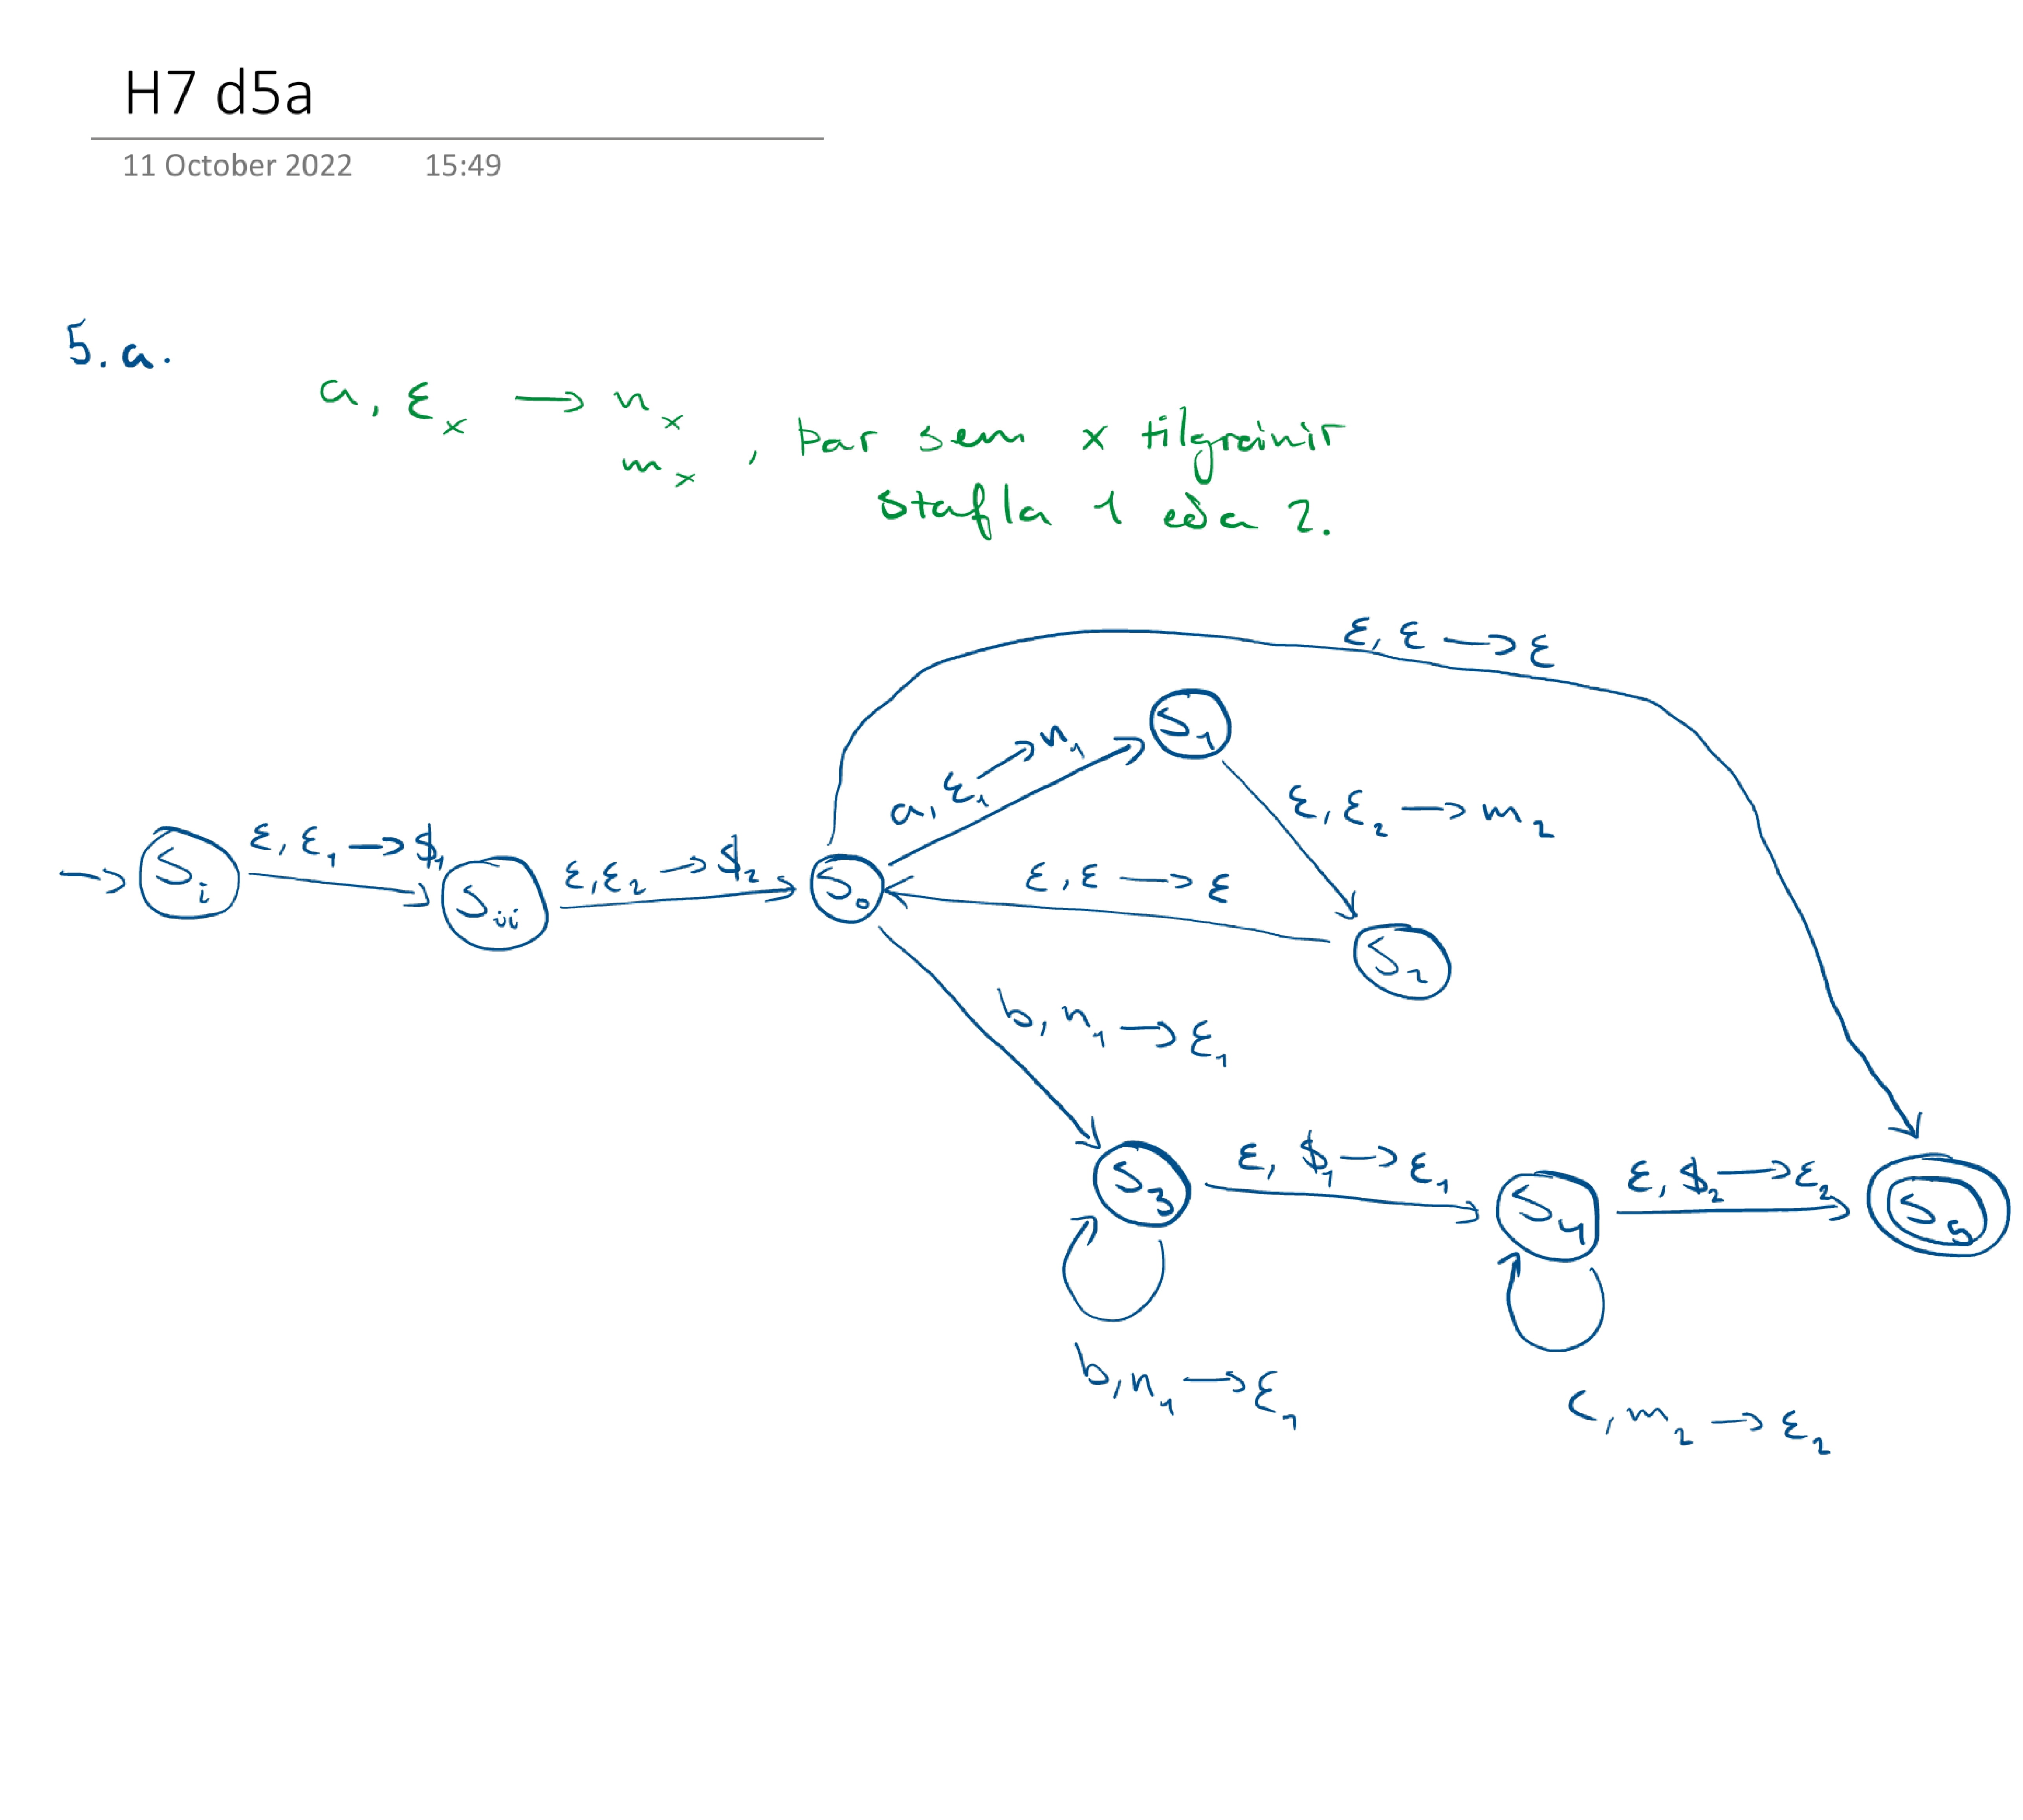 H7 d5a
11 October 2022 15:49
5.a.
a, ε_x → n_x
m_x , þar sem x tilgreinir
stafla 1 eða 2.
ε, ε → ε
S_1
a, ε_1 → n_1
ε, ε_2 → m_2
ε, ε_1 → $_1
ε, ε_2 → $_2
ε, ε → ε
S_i
S_ii
S_0
S_2
b, n_1 → ε_1
ε, $_1 → ε_1
ε, $_2 → ε_2
S_3
S_4
S_5
b, n_1 → ε_1
c, m_2 → ε_2